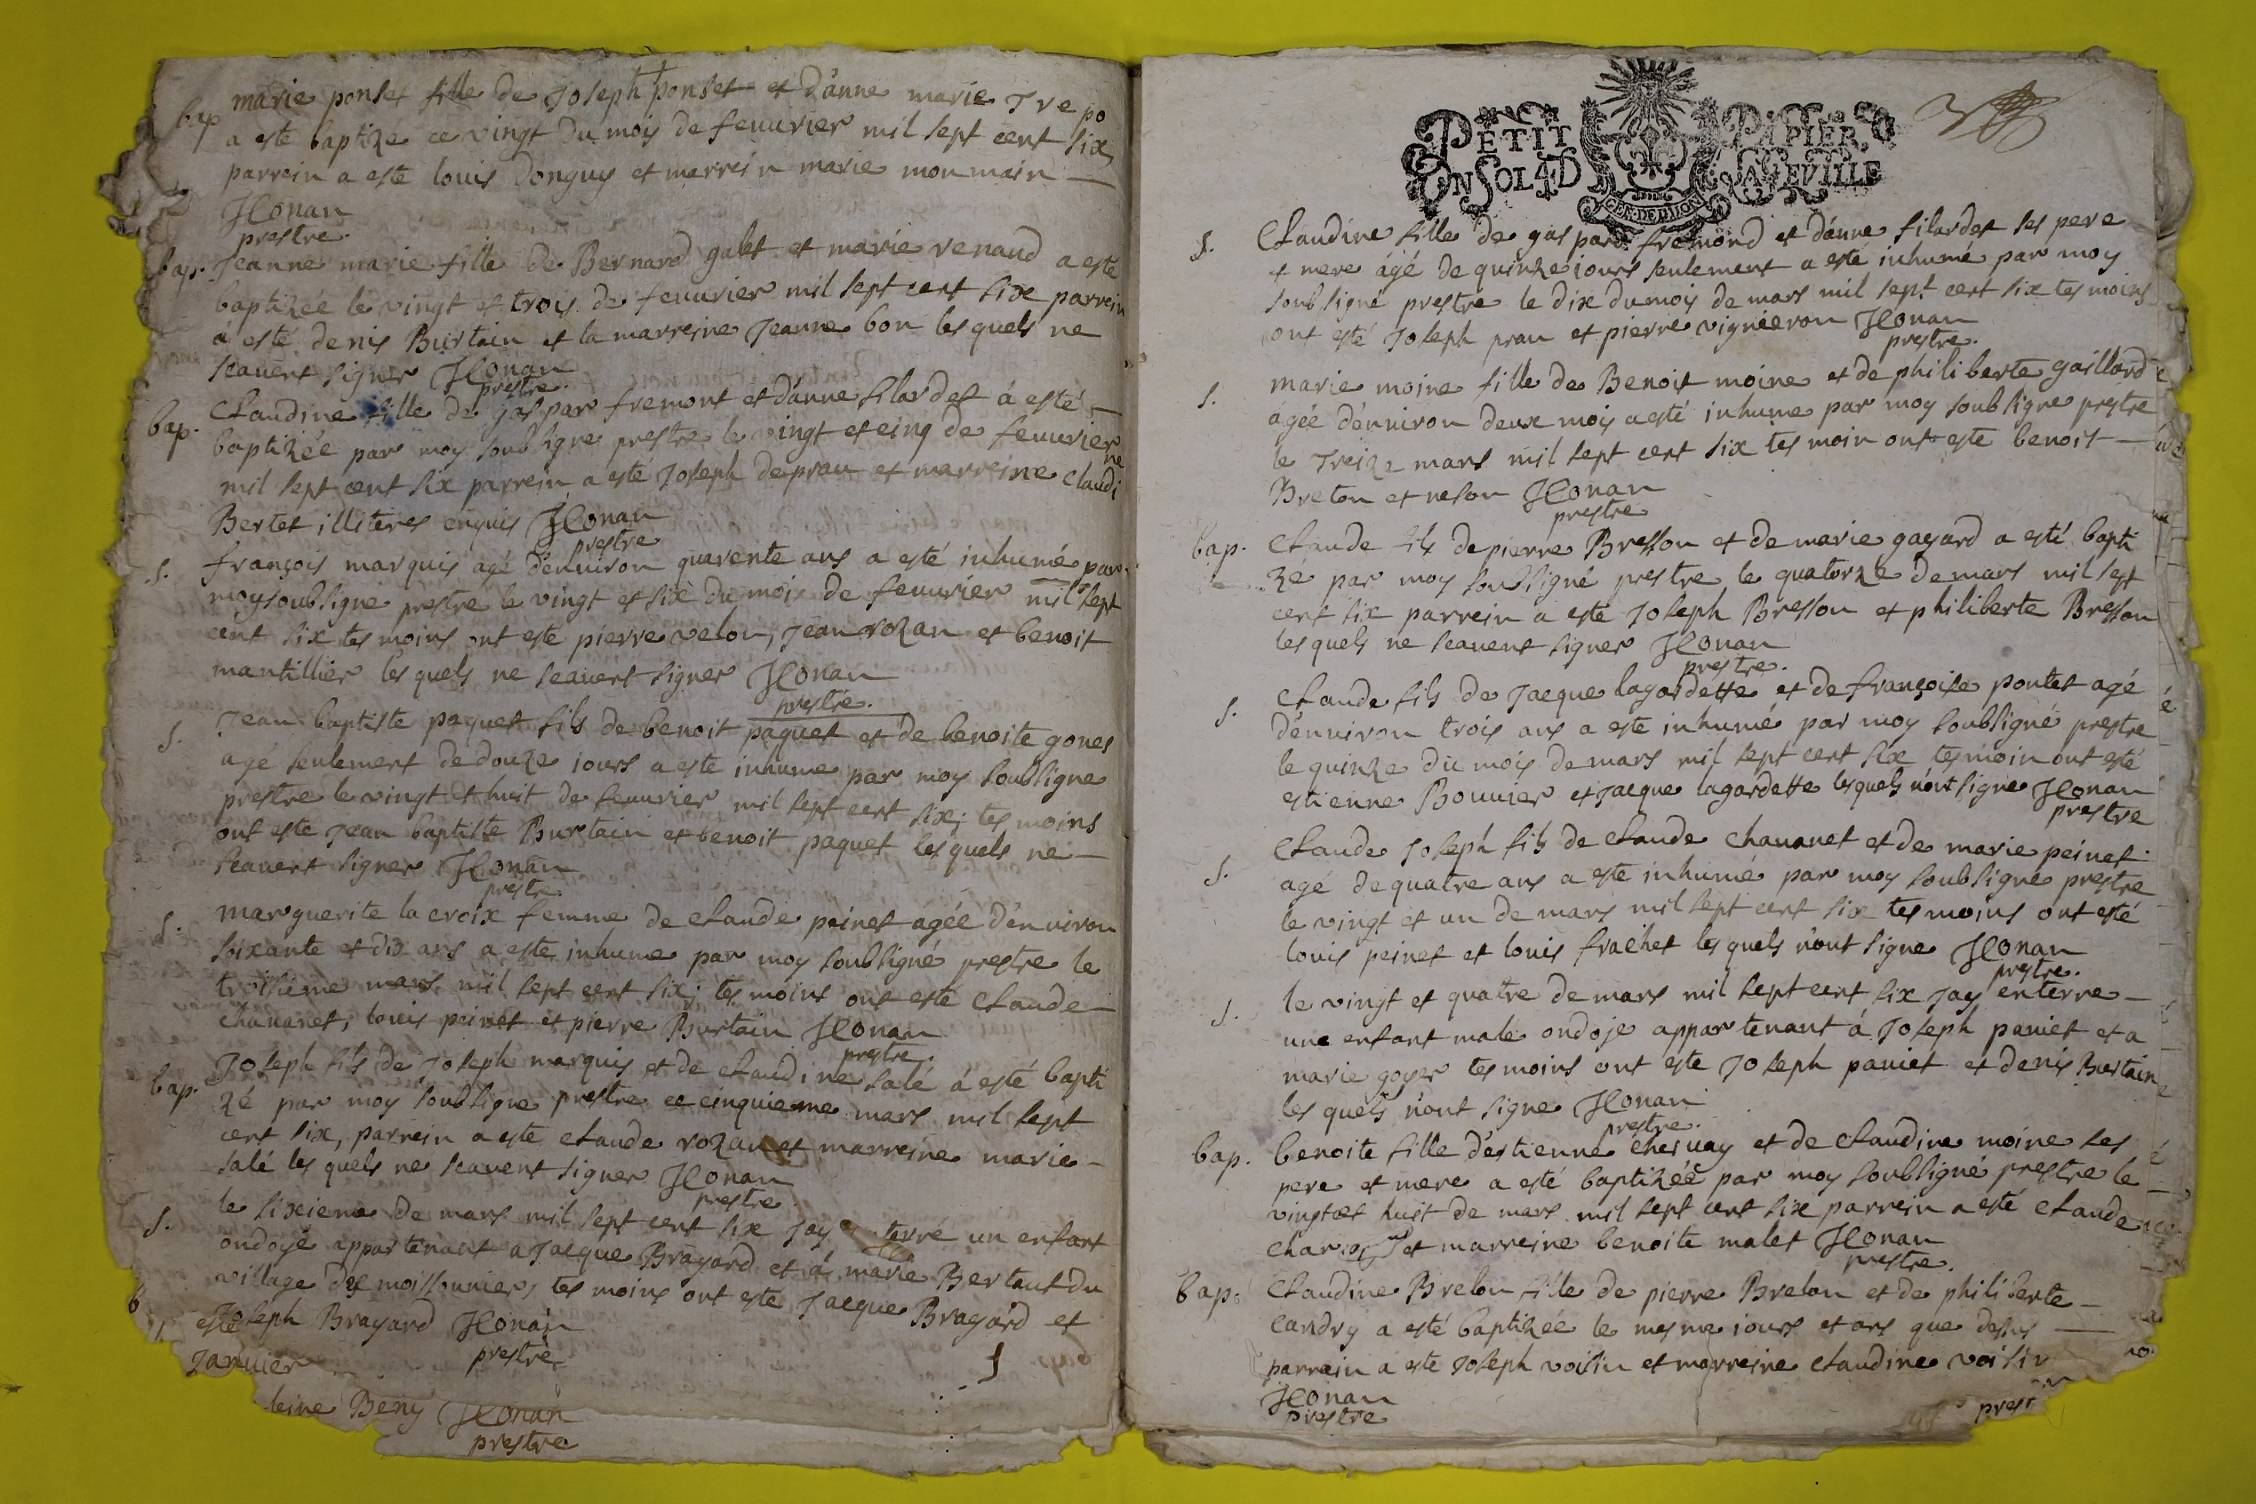 bap marie ponset fille de Joseph ponset et d'anne marie Trepo
a esté baptize ce vingt du mois de feuurier mil sept cent six
parrein a este louis donguy et marrein marie monmain
JConan
prestre.
bap. Jeanne marie fille de Bernard galet et marie renaud a esté
baptizée le vingt et trois de feuurier mil sept cent six parrein
à esté denis Burtain et la marreine Jeanne bon les quels ne
scauent signer JConan
prestre.
bap. Claudine fille de gaspar fremont et d'anne filardet à esté
baptizée par moy soubsigne prestre le vingt et cinq de feuurier
mil sept cent six parrein a este Joseph deprau et marreine claudi ne
Bertet illiteres enquis JConan
prestre
s. françois marquis agé d'enuiron quarente ans a esté inhumé par
moy soubsigne prestre le vingt et six du mois de feuurier mil sept
cent six tesmoins ont este pierre velon, Jean rozan et benoit
mantillier les quels ne scauent signer JConan
prestre.
s. Jean baptiste paquet fils de benoit paquet et de benoite gonet
agé seulement de douze iours a este inhume par moy soubsigne
prestre le vingt et huit de feuurier mil sept cent six; tesmoins
ont este Jean baptiste Burtain et benoit paquet les quels ne
scauent signer JConan
prestre.
s. marguerite la croix femme de claude peinet agée d'enuiron
soixante et dix ans a este inhume par moy soubsigné prestre le
troisieme mars mil sept cent six; tesmoins ont esté claude
chauanet, louis peinet et pierre Burtain JConan
prestre.
bap. Joseph fils de Joseph marquis et de claudine salé à esté bapti
zé par moy soubsigne prestre ce cinquieme mars mil sept
cent six, parrein a este claude rozan et marreine marie
salé les quels ne scauent signer JConan
prestre
s. le sixieme de mars mil sept cent six Jay enterré un enfant
ondoyé appartenant a Jacque Bragard et à marie Bertaut du
village du moissonnier, tesmoins ont este Jacque Bragard et
Joseph Bragard JConan
prestre
Januier
leine Beny JConan
prestre
PETIT PAPIER
UN SOL 4 D LA FEVILLE
GEN DE DIION
s. Claudine fille de gaspard fremond et d'anne filardet ses pere
et mere âgé de quinze iours seulement a esté inhumé par moy
soubsigné prestre le dix du mois de mars mil sept cent six tesmoins
ont esté Joseph prau et pierre vignieron JConan
prestre.
s. marie moine fille de Benoit moine et de philiberte gaillard
agée d'enuiron deux mois a esté inhume par moy soubsigne prestre
le treize mars mil sept cent six tesmoin ont este benoit
Breton et neson JConan
prestre
bap. Claude fils de pierre Bresson et de marie gagard a esté bapti
zé par moy soubsigné prestre le quatorze de mars mil sept
cent six parrein a este Joseph Bresson et philiberte Bresson
les quels ne scauent signer JConan
prestre.
s. Claude fils de Jacque lagardette et de françoise pontet agé
d'enuiron trois ans a este inhumé par moy soubsigné prestre
le quinze du mois de mars mil sept cent six tesmoin ont esté
estienne Bouuier et Jacque lagardette lesquels n'ont signe JConan
prestre
s. Claude Joseph fils de claude chauanet et de marie peinet
agé de quatre ans a este inhumé par moy soubsigne prestre
le vingt et un de mars mil sept cent six tesmoins ont esté
louis peinet et louis frachet les quels n'ont signe JConan
prestre.
s. le vingt et quatre de mars mil sept cent six Jay enterre
une enfant male ondoje appartenant à Joseph paniet et a
marie goyer tesmoins ont este Joseph paniet et denis Burtain
les quels n'ont signe JConan
prestre.
bap. benoite fille d'estienne cheruay et de claudine moine ses
pere et mere a esté baptizée par moy soubsigné prestre le
vingt et huit de mars mil sept cent six parrein a esté claude
et marreine benoite malet JConan
prestre.
bap. Claudine Brelon fille de pierre Brelon et de philiberte
candry a esté baptizée le mesme iours et ans que dessus
parrein a este Joseph voisin et marreine claudine voisin
JConan
prestre